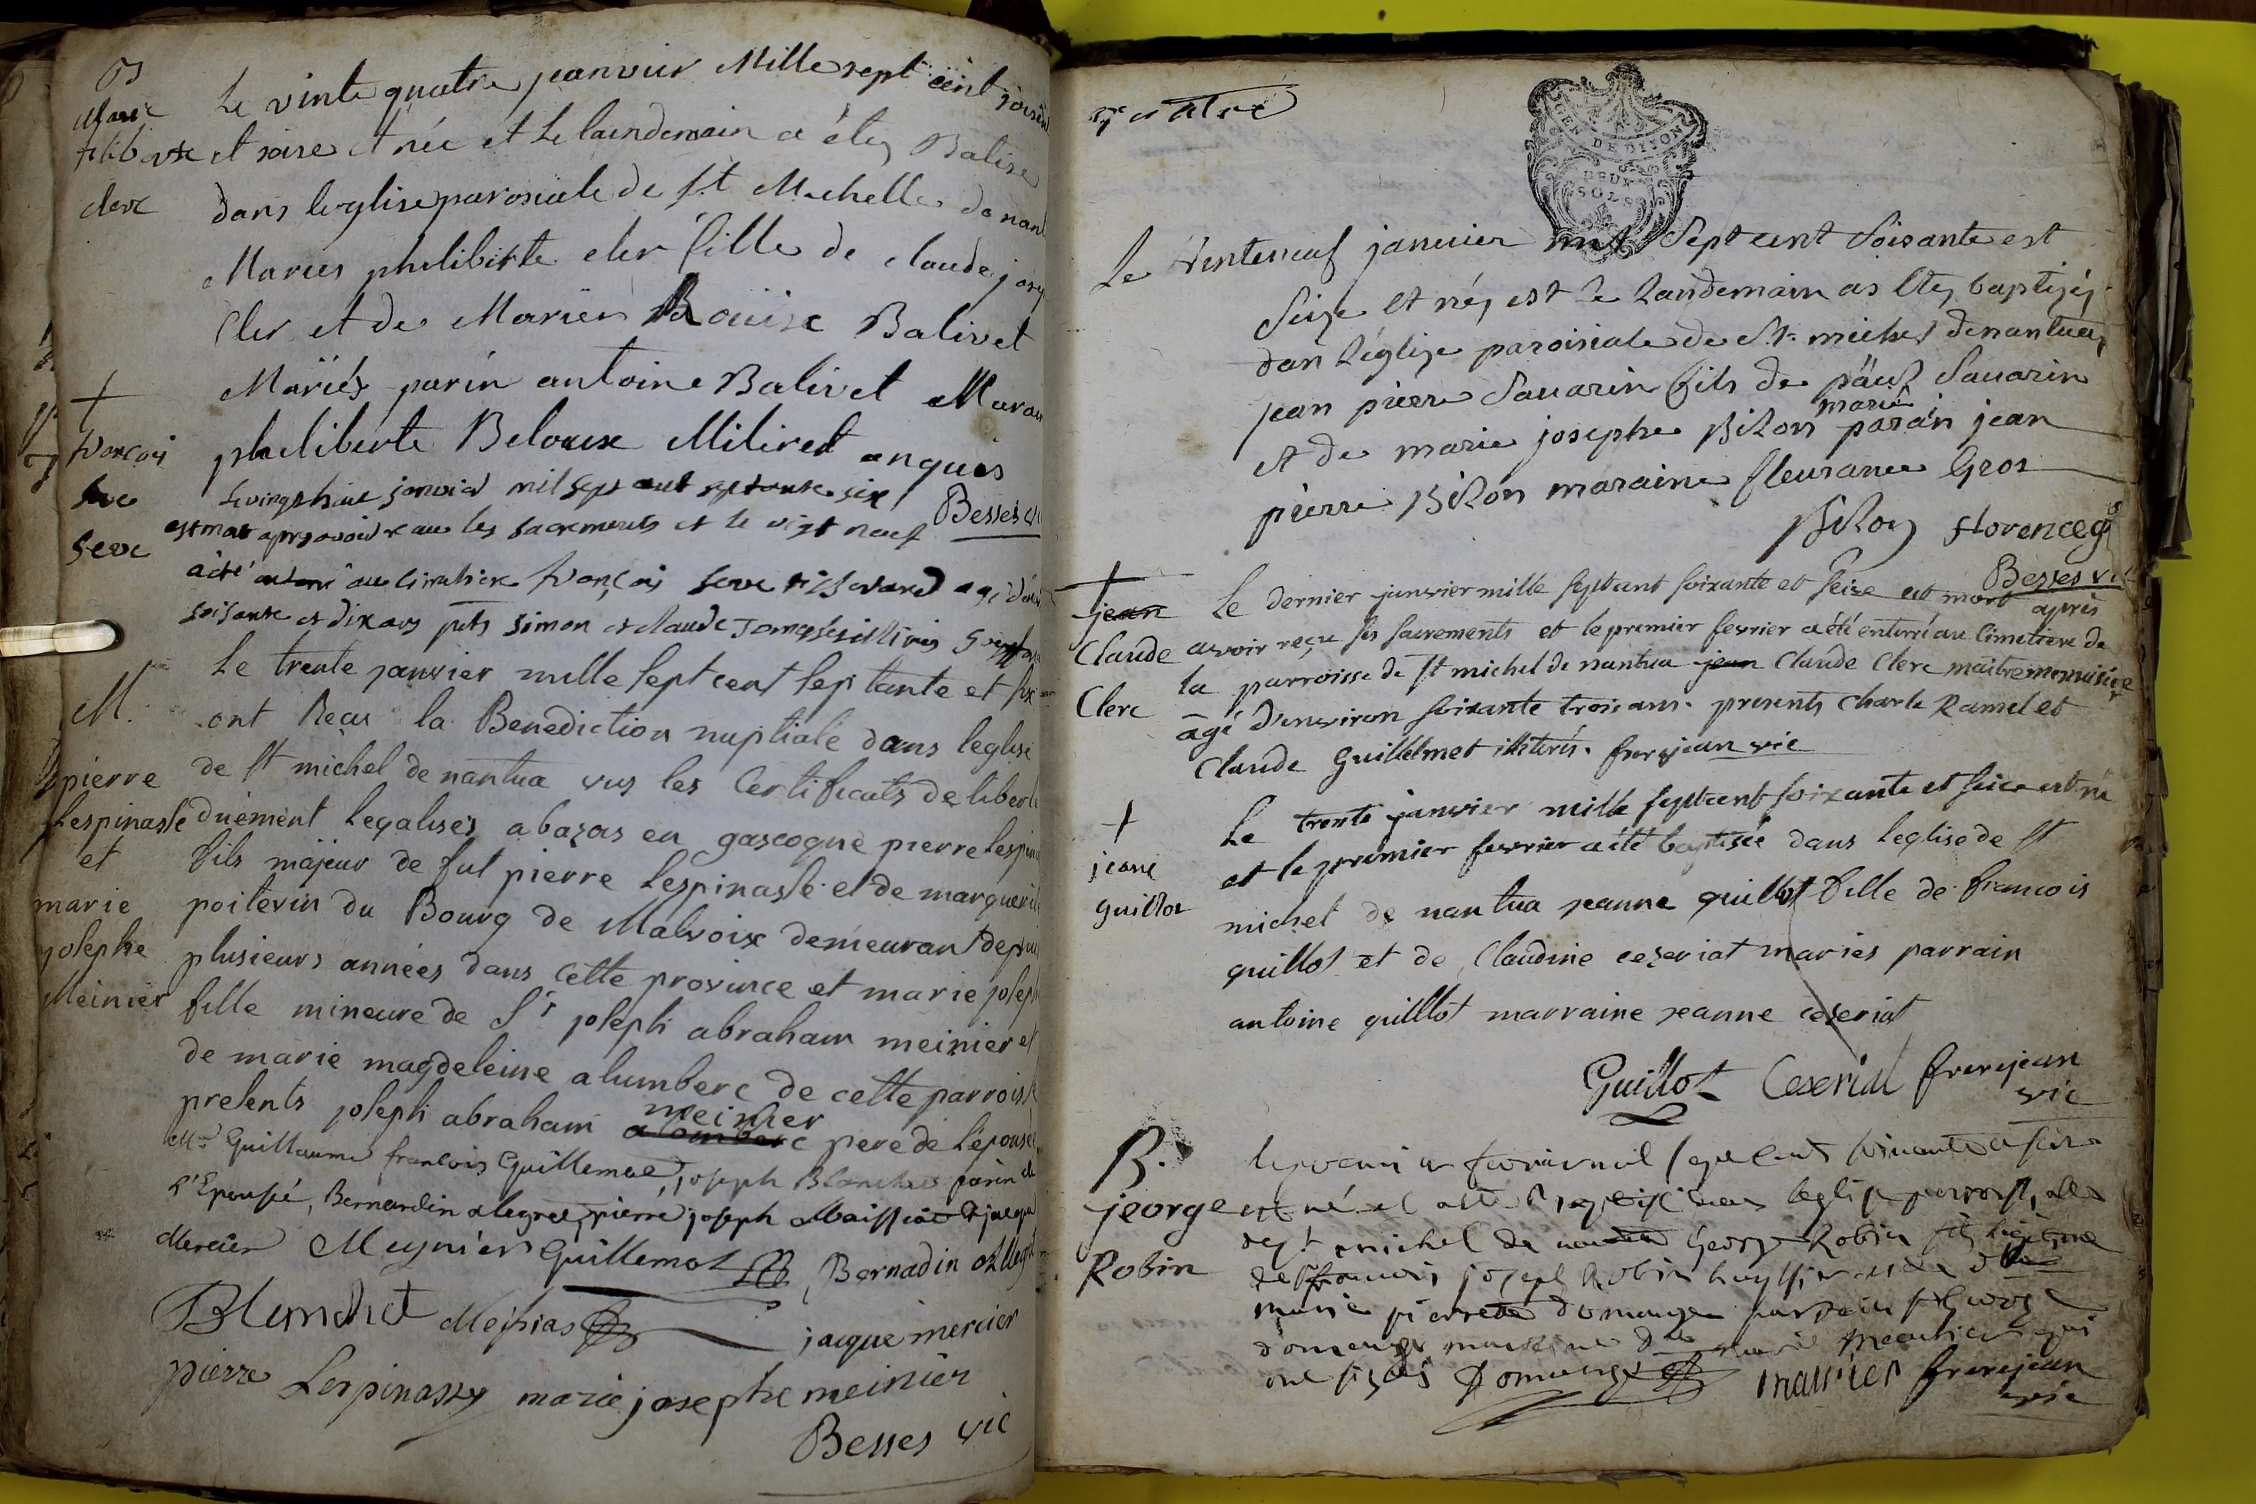 Marie
filiberte
clerc
Le vinte quatre janvier Mille sept cent soisente
et saise et née et Le laindemain a étéy Batise
dans leglise parosiale de St Michelle de nant
Maries philiberte cler fille de claude jose
Cler et de Mariën Rouise Balivet
Mariés parin antoine Balivet Marain
philiberte Beloux Militret anquis
Besses vic
+
francois
seve
Le vingt huit janvier mil sept cent septante six
est mort apres avoir recu les sacrements et le vingt neuf
a été au cimetiere francois seve age d'env
soisante et dix ans pnts simon et claude illitirés
M.
pierre
Lespinasse
et
marie
josephe
Meinier
Le trente janvier mille sept cent septante et six
ont Reçu la Benediction nuptiale dans leglise
de St michel de nantua vus les Certificats de liberte
duement legalisés a bazas en gascogne pierre lespina
fils majeur de fut pierre Lespinasse et de marguerite
poitevin du Bourg de Malvoix demeurant depuis
plusieurs années dans cette province et marie joseph
fille mineure de Sr joseph abraham meinier et
de marie magdeleine alumberc de cette parroisse
presents joseph abraham meinier alomberc pere de l'epousée
Mre Guillaume francois Guillemot, joseph Blanchet parin de
l'Epousée, Bernardin alegree, pierre joseph Maissiat & jacque
Mercier Meynier Guillemot Bernadin allegre
Blanchet Messias jacque mercier
pierre Lespinassy marie josephe meinier
Besses vic
quatre
GEN DE DIJON
DEUX
SOLS
Le vinteneuf janvier mil Sept cent Soisante est
Seize et néy est Le Landemain as Etey baptizéy
dan L'églize paroisiale de St michel denantuay
jean pierre Savarin fils de päul Savarin
et de marie josephe Bilon marié parain jean
pierre Bilon maraine fleurance Gros
Bilon florence g
Besses vic
+
jean
Claude
Clerc
Le dernier janvier mille sept cent soixante et seize est mort après
avoir reçu ses sacrements et le premier fevrier a été enterré au Cimetiere de
la parroisse de St michel de nantua jean Claude Clerc maitre menuisier
âgé d'environ soixante trois ans. presents Charle Ramel et
Claude Guillelmet illiterés. frerejean vic
+
jeane
guillot
Le trente janvier mille sept cent soixante et seice est né
et le premier fevrier a été baptisée dans leglise de St
michel de nantua jeanne guillot fille de francois
guillot et de Claudine ceseriat maries parrain
antoine guilllot marraine jeanne ceseriat
Guillot Ceseriat frerejean
vic
B.
george
Robin
le premier fevrier mil sept cent soixante et seize
est né et a été baptisé dans leglise parroisialle
de St michel de nantua George Robin fils légitime
de francois joseph Robin huyssier et de dlle
marie pierrette domange parrain george
domange marraine dlle marie meunier qui
ont signés Domange maunier frerejean
vic